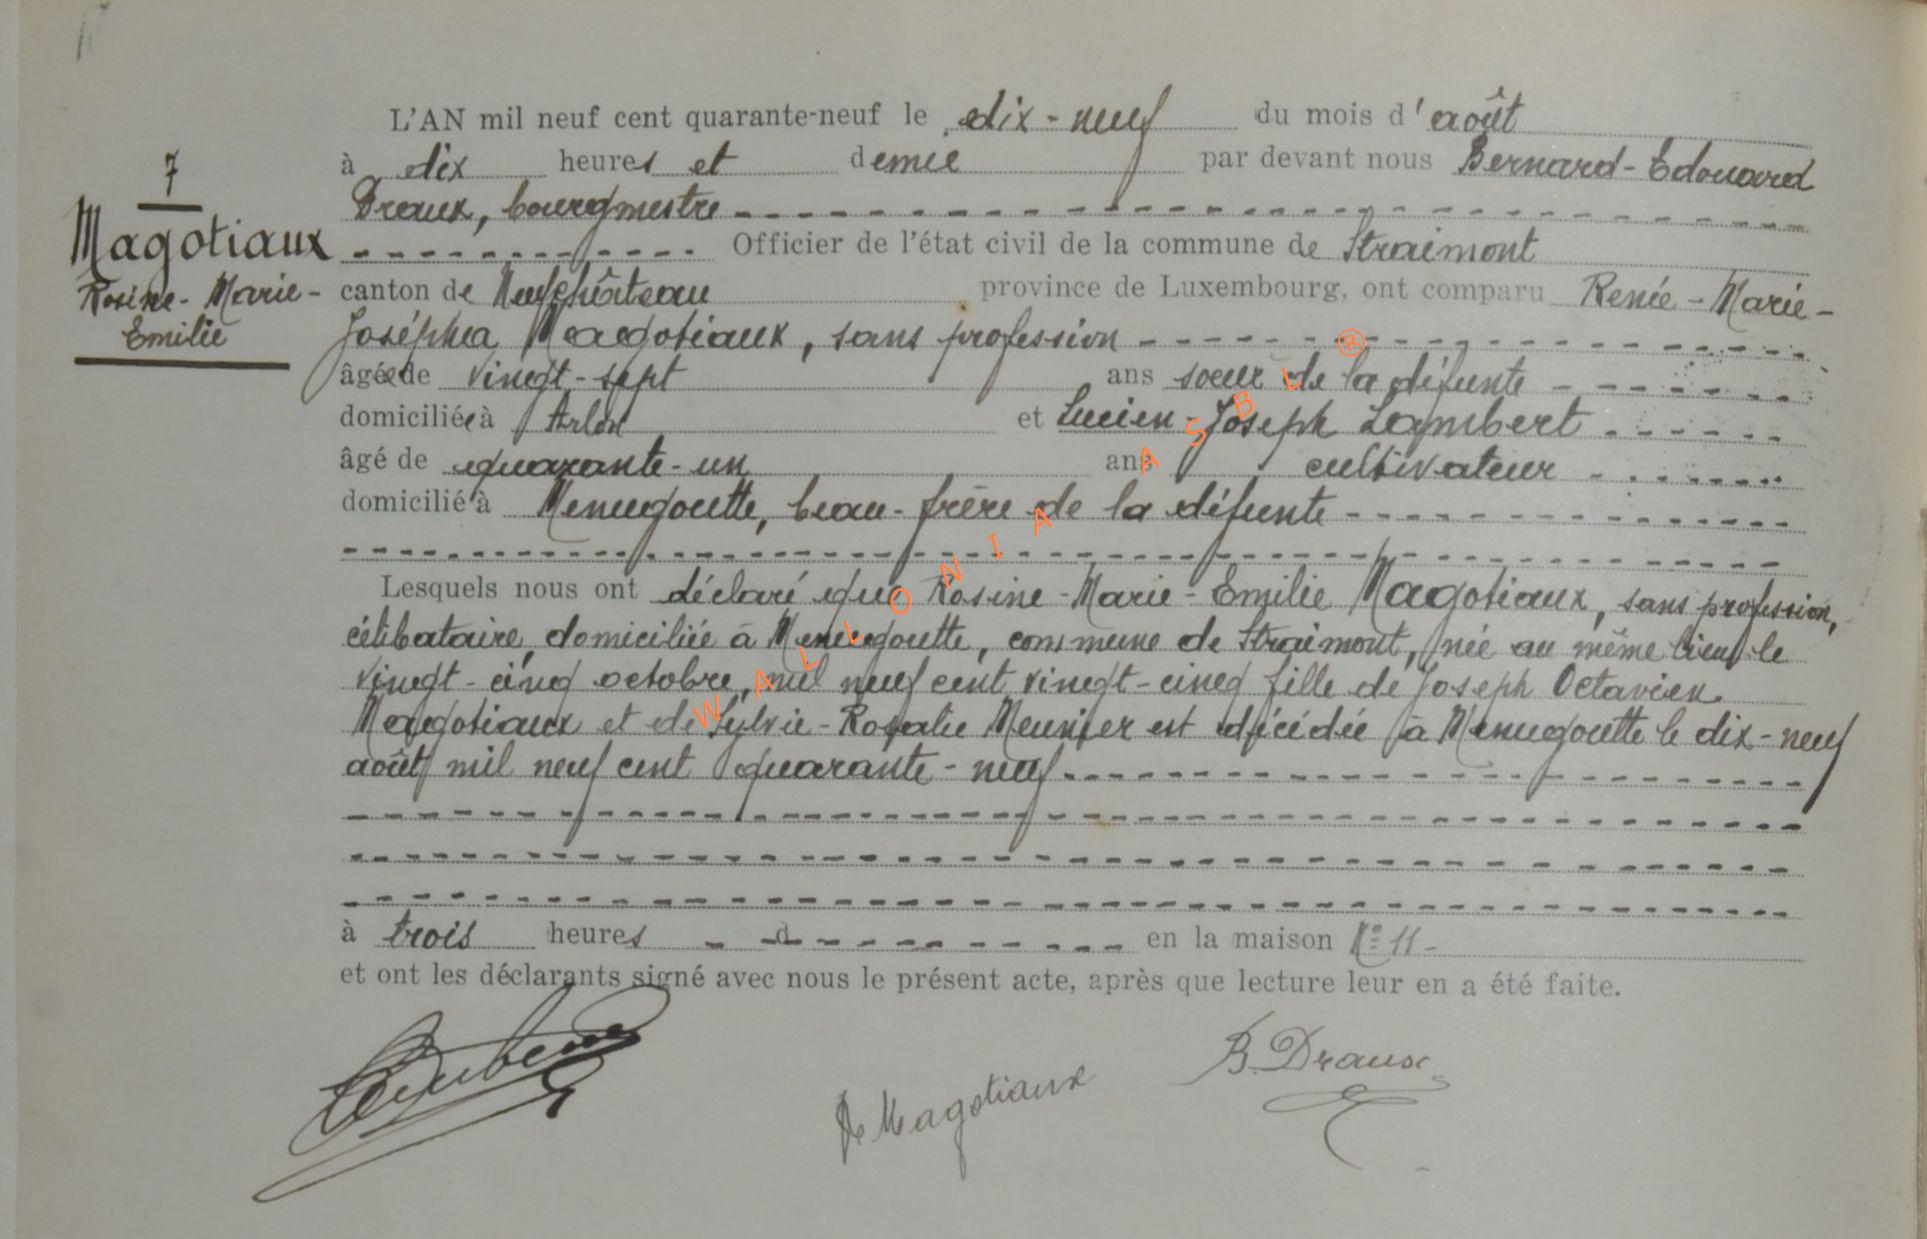 7
Magotiaux
Rosine-Marie-
Emilie
L'AN mil neuf cent quarante-neuf le dix-neuf du mois d'août
à dix heures et demie par devant nous Bernard-Edouard
Draux, bourgmestre
Officier de l'état civil de la commune de Straimont
canton de Neufchâteau province de Luxembourg, ont comparu Renée-Marie-
Joséphea Magotiaux, sans profession
âgée de vingt-sept ans soeur de la défunte
domiciliée à Arlon et Lucien-Joseph Lambert
âgé de quarante-un ans cultivateur
domicilié à Menugoutte, beau-frère de la défunte
Lesquels nous ont déclaré que Rosine-Marie-Emilie Magotiaux, sans profession,
célibataire, domiciliée à Menugoutte, commune de Straimont, née au même lieu le
vingt-cinq octobre, mil neuf cent vingt-cinq fille de Joseph Octavien
Magotiaux et de Sylvie-Rosalie Meunier est décédée à Menugoutte le dix-neuf
août mil neuf cent quarante-neuf
à trois heures d en la maison N° 11
et ont les déclarants signé avec nous le présent acte, après que lecture leur en a été faite.
R Magotiaux
B. Draux
WALLONIA ASBL ®